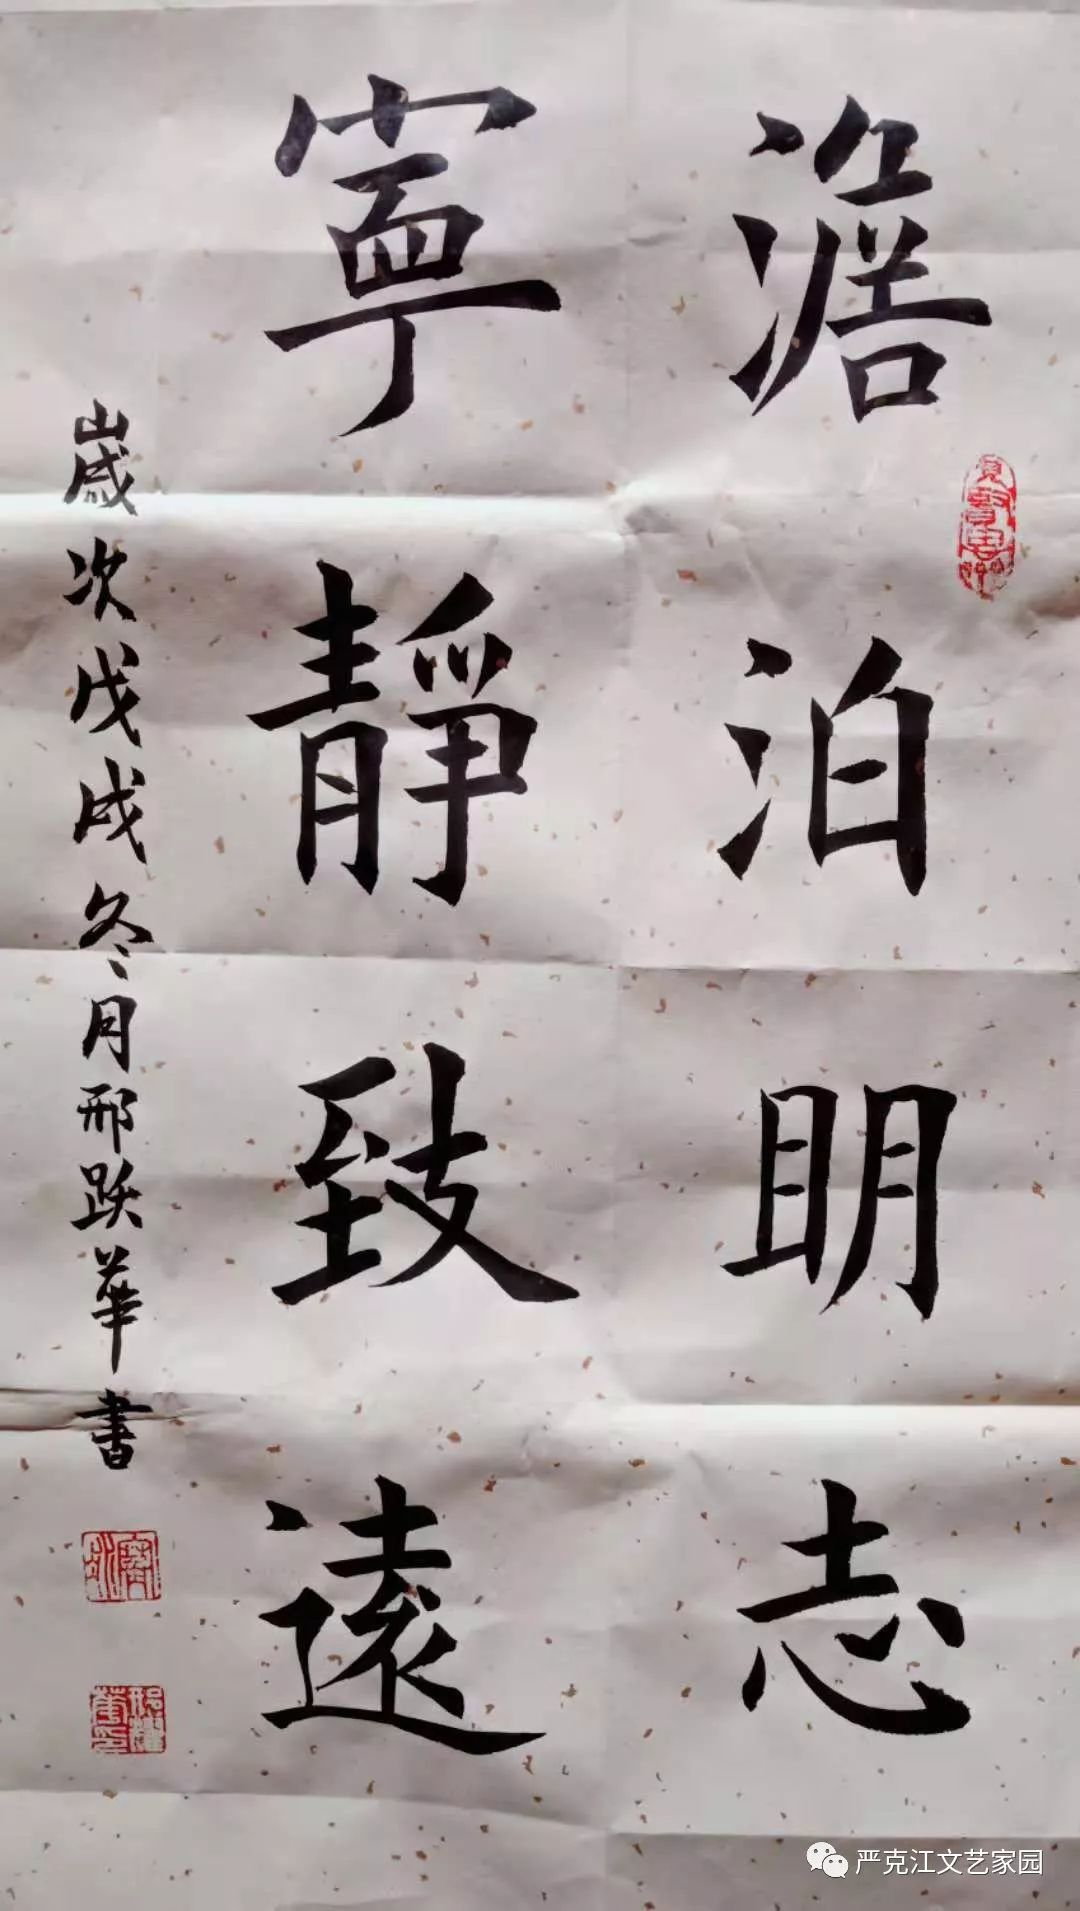 澹泊眀志
寧靜致遠
歲次戊戌冬月邢跃華書
严克江文艺家园